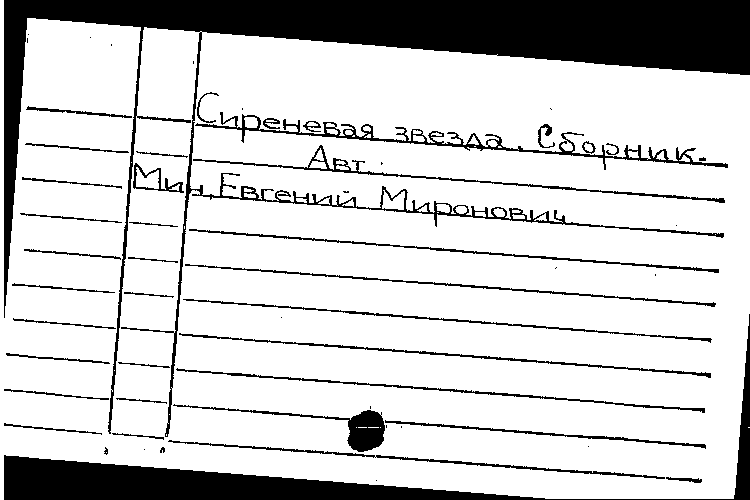 Сиреневая звезда. Сборник.
Авт.:
Мин, Евгений Миронович